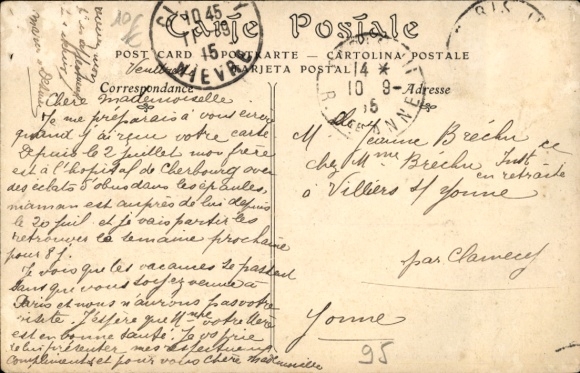 Carte Postale
POST CARD POSTKARTE — CARTOLINA POSTALE
TARJETA POSTAL
Correspondance
Adresse
Vendredi
Chère Mademoiselle
Je me préparais à vous envoyer
quand j'ai reçu votre carte
Depuis le 2 juillet mon frère
est à l'hôpital de Cherbourg avec
des éclats d'obus dans les épaules,
maman est auprès de lui depuis
le 20 juil. et je vais partir les
retrouver la semaine prochaine
pour 8 j.
Je vois que les vacances se passent
sans que vous soyez venue à
Paris et nous n'aurons pas votre
visite. J'espère que Mme votre Mère
est en bonne santé. Je vous prie
de lui présenter mes respectueux
compliments et pour vous Chère Mademoiselle
Jeanne Bréchu
chez Mme Bréchu Instce
en retraite
à Villiers s/ Yonne
par Clamecy
Yonne
95
NIEVRE
15
14 *
10 9-
15